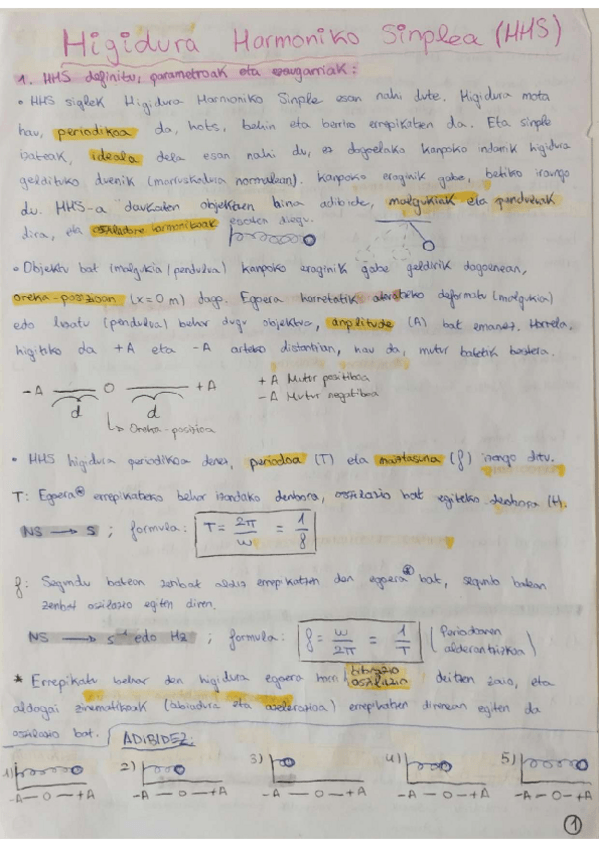 Higidura Harmoniko Sinplea (HHS)
1. HHS definitu, parametroak eta ezaugarriak:
• HHS siglek Higidura Harmoniko Sinple esan nahi dute. Higidura mota
hau, periodikoa da, hots, behin eta berriro errepikatzen da. Eta sinple
izateak, ideala dela esan nahi du, ez dagoelako kanpoko indarrik higidura
geldituko duenik (marruskadura normalean). Kanpoko eraginik gabe, betiko iraungo
du. HHS-a daukaten objektuen bina adibide, malgukiak eta penduluak
dira, eta osziladore harmonikoak esaten diegu.
• Objektu bat (malgukia/pendulua) kanpoko eraginik gabe geldirik dagoenean,
oreka-posizioan (x=0 m) dago. Egoera horretatik ateratzeko deformatu (malgukia)
edo lisatu (pendulua) behar dugu objektua, anplitude (A) bat emanez. Horrela,
higituko da +A eta -A arteko distantzian, hau da, mutur batetik bestera.
-A O +A + A Mutur positiboa
- A Mutur negatiboa
d d
Oreka-posizioa
• HHS higidura periodikoa denez, periodoa (T) eta maiztasuna (f) izango ditu.
T: Egoera errepikatzeko behar izandako denbora, oszilazio bat egiteko denbora (t).
NS → s ; formula: T = 2π/w = 1/f
f: Segundu batean zenbat aldiz errepikatzen den egoera bat, segundo batean
zenbat oszilazio egiten diren.
NS → s⁻¹ edo Hz ; formula: f = w/2π = 1/T (Periodoaren alderantzizkoa)
* Errepikatu behar den higidura egoera horri bibrazio oszilazio deitzen zaio, eta
aldagai zinematikoak (abiadura eta azelerazioa) errepikatzen direnean egiten da
oszilazio bat. ADIBIDEZ:
1) 2) 3) 4) 5)
-A-O-+A -A-O-+A -A-O-+A -A-O-+A -A-O-+A
1